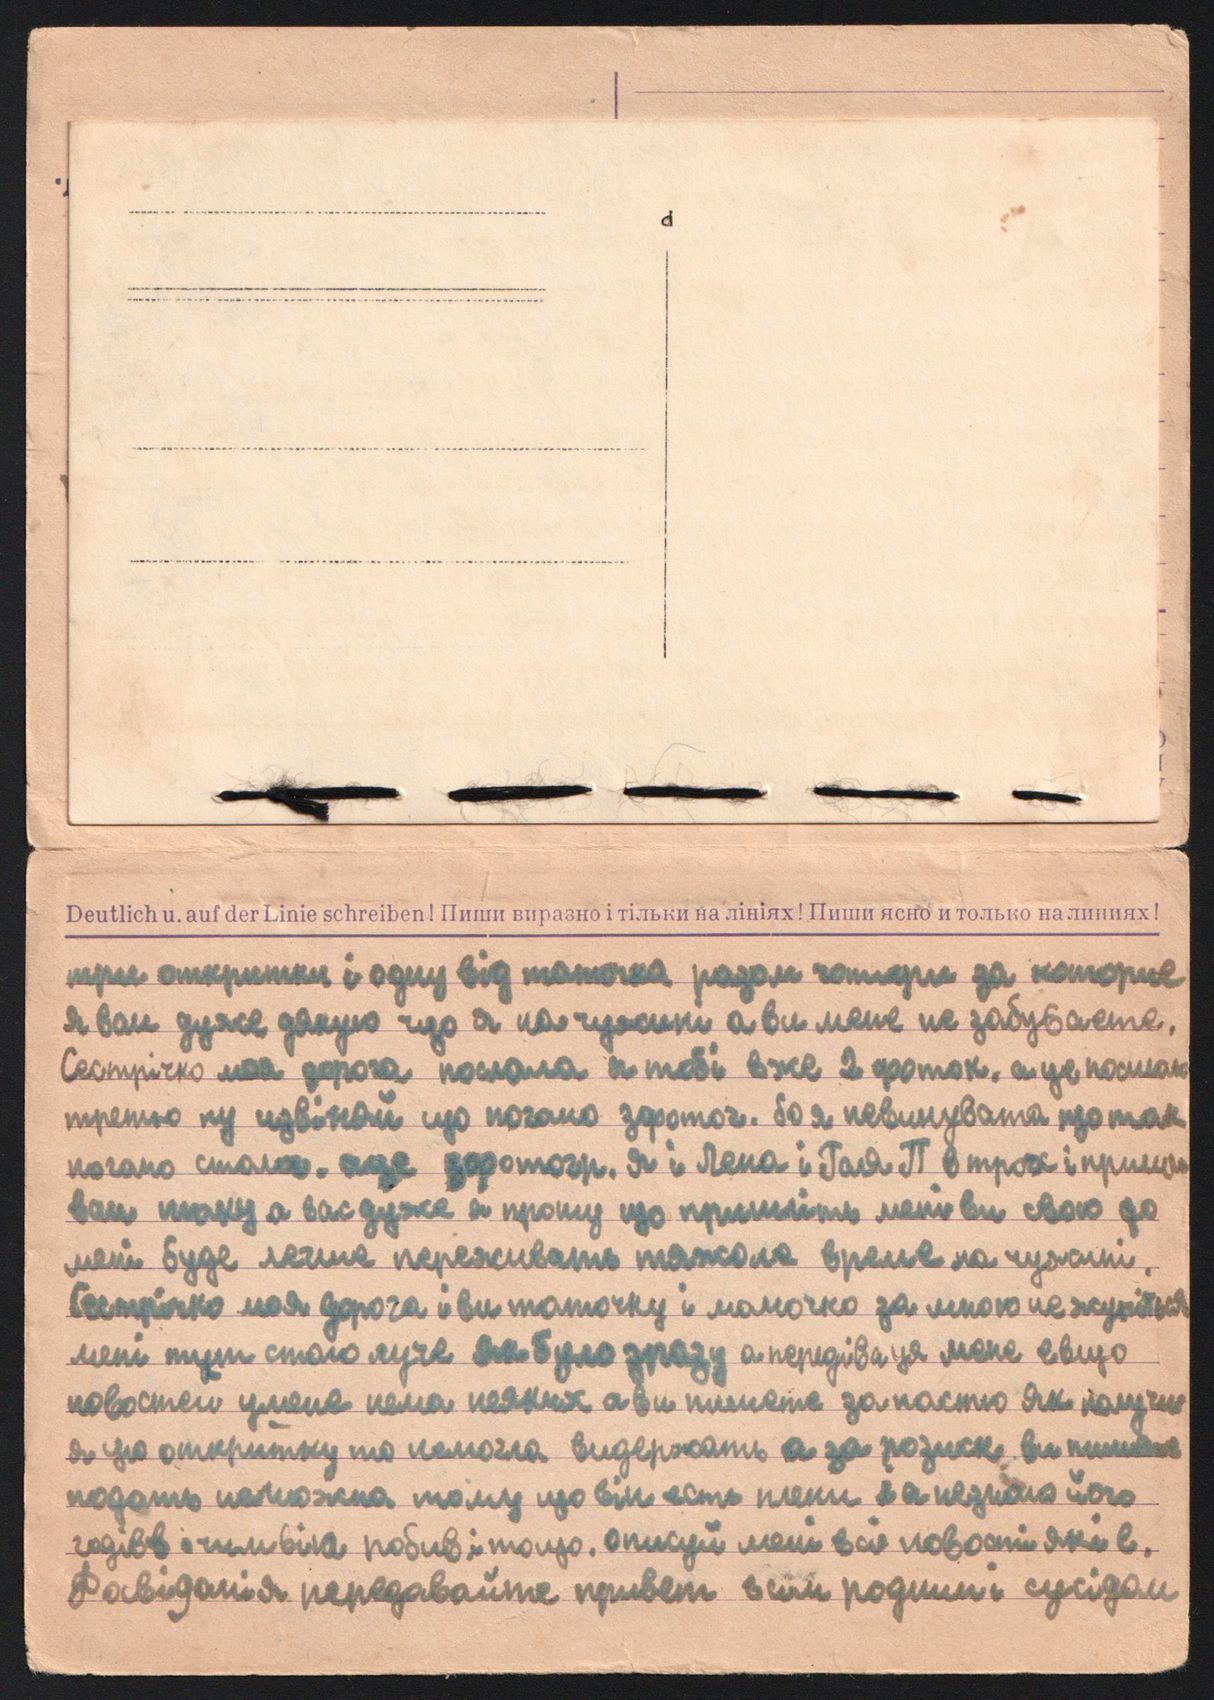 Deutlich u. auf der Linie schreiben! Пиши виразно і тільки на лініях! Пиши ясно и только на линиях!
три откритки і одну від таточка разом чотири за которие
я вам дуже дякую що я на чужині а ви мене не забуваете.
Сестрічко моя дорога послала я тобі вже 2 фоток. а це посилаю
третю ну ізвіняй що погано бо я невинувата що так
погано стала. я і Лена і Галя П в трох і
вам а вас дуже я прошу що пришліть мені ви свою до
мені буде легше переживать тяжоле време на чужині.
Сестрічко моя дорога і ви таточку і мамочко за мною не журіться
мені тут стало луче як було зразу а мене
новостей умене нема неяких а ви пишете за настю як получила
я цю откритку то немогла видержать а за розиск ви
подать неможна тому що він есть і я незнаю його
годів і тощо. описуй мені всі новості які е.
Росвіданія передавайте привет всім родним і сусідам